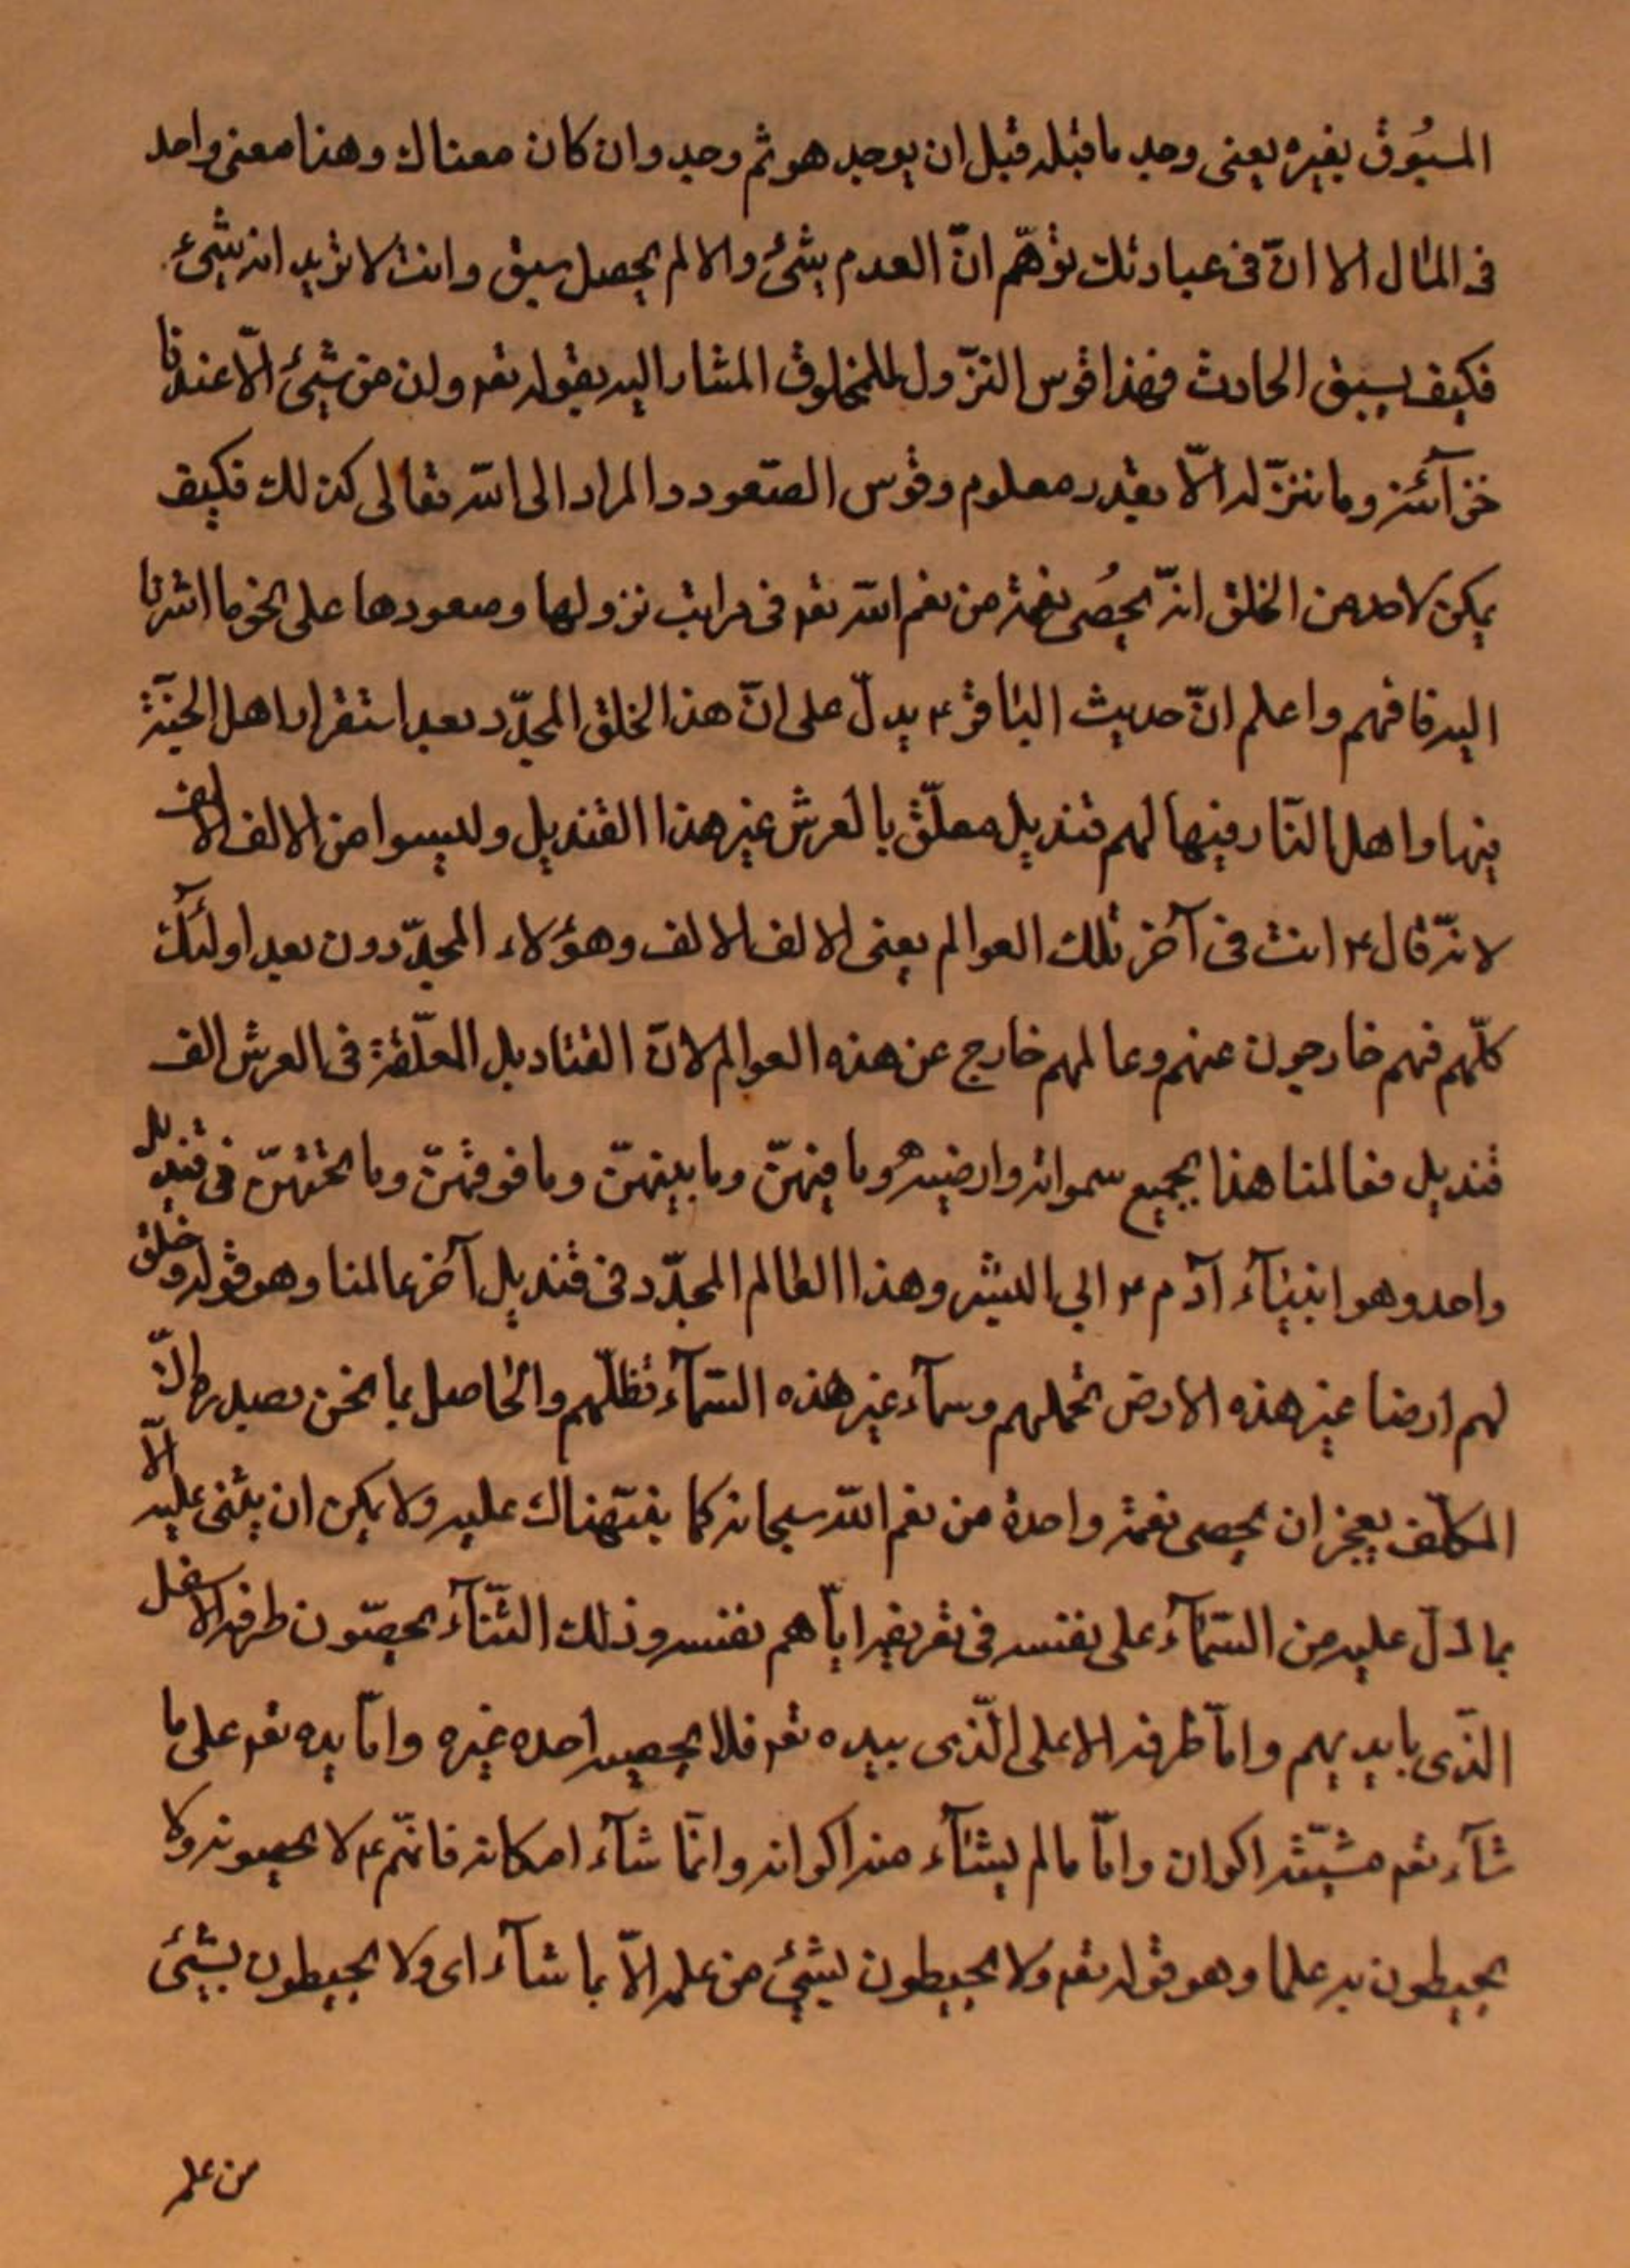 المسبُوق بغيره يعنى وجد ما قبله قبل ان يوجد هو ثم وجد وان كان معناك وهنا معنى واحد
فى المٰال الا انّ فى عبارتك توهّم انّ العدم شئ والا لم يحصل سبق وانت لا تريد انه شئ
فكيف يسبق الحادث فهذا قوس النزّول للمخلوق المشار اليه بقوله تعه وان من شئ الّا عندنا
خزآئنه وما ننزّله الّا بقدر معلوم وقوس الصّعود والمراد الى اللّه تعالى كذلك فكيف
يمكن لاحد من الخلق انّ يحصُى نعمة من نعم اللّه تعه فى مراتب نزولها وصعودها على نحو ما اشرنا
اليه فافهم واعلم انّ حديث البٰاقر ۴ يدلّ على انّ هذا الخلق المجدّد بعد استقرار اهل الجنّة
فيها واهل النّار فيها لهم قنديل معلّق بالعرش غير هذا القنديل وليسوا من الالف الالف
لانّه قال ۴ انت فى آخر تلك العوالم يعنى الالف الالف وهؤلاء المجدّدون بعد اولئك
كلّهم فهم خارجون عنهم وعالمهم خارج عن هذه العوالم لانّ القناديل المعلّقة فى العرش الف
قنديل فعالمنا هذا بجميع سمواته وارضيه وما فيهنّ وما بينهنّ وما فوقهنّ وما تحتهنّ فى قنديل
واحد وهو ابنيآء آدم ۴ ابي البشر وهذا العالم المجدّد فى قنديل آخر عالمنا وهو قوله وخلق
لهم ارضا غير هذه الارض تحملهم وسمآء غير هذه السّمآء تظلّهم والحٰاصل بما نحن بصدده انّ
المكلّف يعجز ان يحصى نعمة واحدة من نعم اللّه سبحانه كما بنّهناك عليه ولا يمكن ان يثنى عليه الّا
بما دلّ عليه من السّمآء على نفسه فى تعريفه ايّاهم نفسه وذلك الثّنآء يحصّون طرفه الاسفل
الذّى بايديهم وامّا طرفه الاعلى الذّى بيده تعه فلا يحصيه احده غيره وامّا بيده تعه على ما
شآء تعه مشيّته اكوان وامّا ما لم يشآء منه اكوانه وانّما شآء امكانه فانهّم ۴ لا يحصونه ولا
يحيطون به علما وهو قوله تعه ولا يحيطون بشئ من علمه الاّ بما شآء اى ولا يحيطون بشئ
من علمه